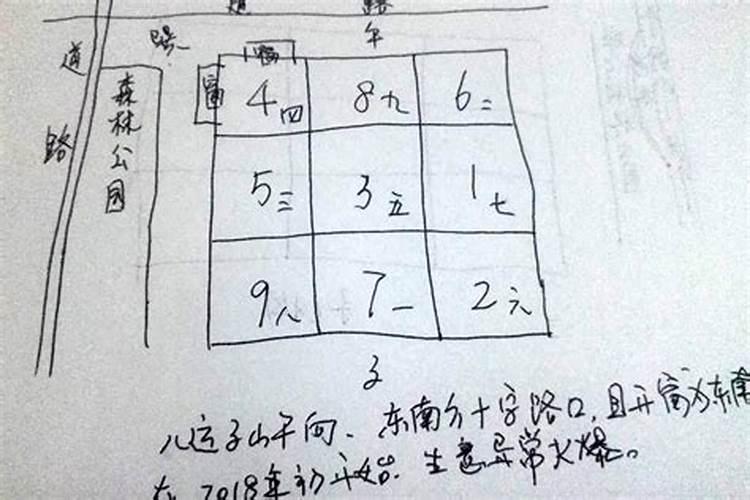 道 路
道 路
午
窗
森林公园
4四 8九 6二
5三 3五 1七
9八 7一 2六
子
八运子山午向、东南方十字路口，且开窗为东南
在2018年初开始，生意异常火爆。